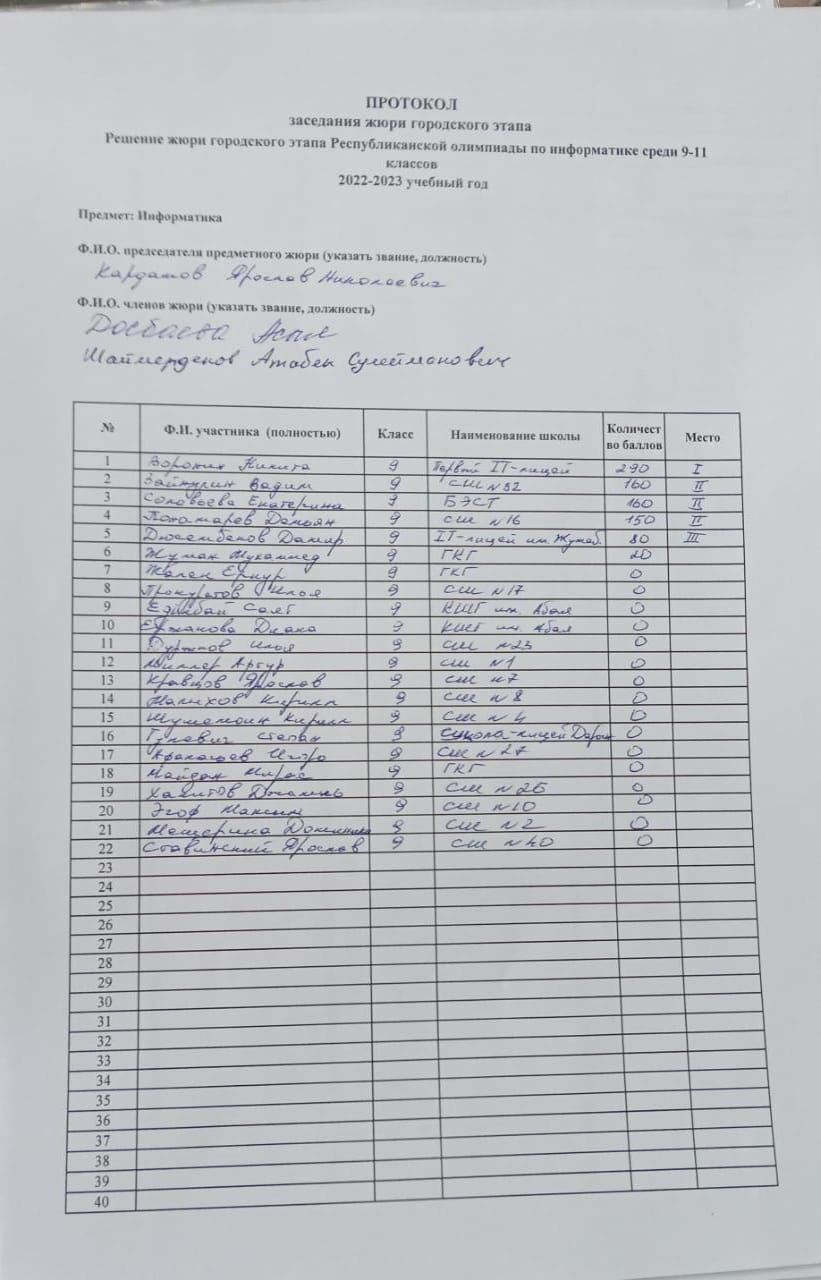 ПРОТОКОЛ
заседания жюри городского этапа
Решение жюри городского этапа Республиканской олимпиады по информатике среди 9-11
классов
2022-2023 учебный год
Предмет: Информатика
Ф.И.О. председателя предметного жюри (указать звание, должность)
Ярослав Николаевич
Ф.И.О. членов жюри (указать звание, должность)
Досбаева Асыл
Шаймерденов Атабек Сулейманович
№ Ф.И. участника (полностью) Класс Наименование школы Количест во баллов Место
1 Воронин Никита 9 Первый IT-лицей 290 I
2 Зайнулин Вадим 9 СШ N 32 160 II
3 Соловьева Екатерина 9 БЭСТ 160 II
4 Понамарев Демьян 9 СШ N 16 150 II
5 Джембенов Дамир 9 IT-лицей им. Жумаб. 80 III
6 Жуман Мухаммед 9 ГКГ 20
7 Жален Ернур 9 ГКГ 0
8 Прокуратов Илья 9 СШ N 17 0
9 Саят 9 КШГ им. Абая 0
10 Ержанова Диана 9 КШГ им. Абая 0
11 Илья 9 СШ N 23 0
12 Миллер Артур 9 СШ N 1 0
13 Кравцов Ярослав 9 СШ N 7 0
14 Малихов Кирилл 9 СШ N 8 0
15 Кирилл 9 СШ N 4 0
16 Гулевич Степан 9 Школа-лицей Дарын 0
17 9 СШ N 27 0
18 Майдан Мирас 9 ГКГ 0
19 Хабитов 9 СШ N 26 0
20 Эгоф Максим 9 СШ N 10 0
21 Мещерина Доминика 9 СШ N 2 0
22 Ставинский Ярослав 9 СШ N 40 0
23
24
25
26
27
28
29
30
31
32
33
34
35
36
37
38
39
40